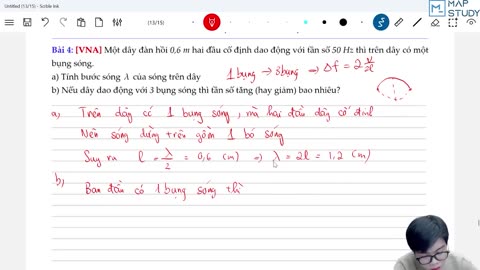 Untitled (13/15) - Scrible Ink
(13/15)
MAP
STUDY
Bài 4: [VNA] Một dây đàn hồi 0,6 m hai đầu cố định dao động với tần số 50 Hz thì trên dây có một
bụng sóng.
a) Tính bước sóng λ của sóng trên dây
1 bụng → 3 bụng ⇒ Δf = 2 v/2l
b) Nếu dây dao động với 3 bụng sóng thì tần số tăng (hay giảm) bao nhiêu?
a, Trên dây có 1 bụng sóng, mà hai đầu dây cố định
Nên sóng dừng trên gồm 1 bó sóng
Suy ra l = λ/2 = 0,6 (m) ⇒ λ = 2l = 1,2 (m)
b) Ban đầu có 1 bụng sóng thì